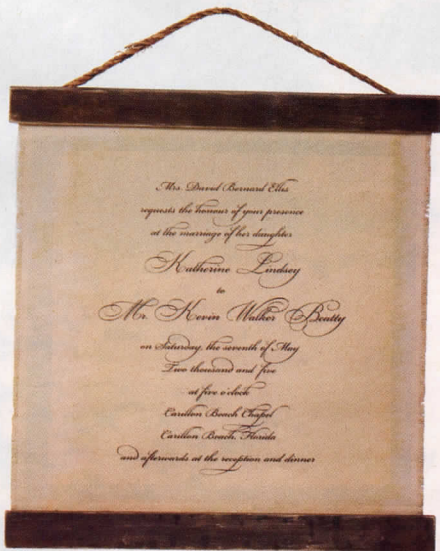 Mrs. David Bernard Ellis
requests the honour of your presence
at the marriage of her daughter
Katherine Lindsey
to
Mr. Kevin Walker Beatty
on Saturday, the seventh of May
Two thousand and five
at five o'clock
Carillon Beach Chapel
Carillon Beach, Florida
and afterwards at the reception and dinner